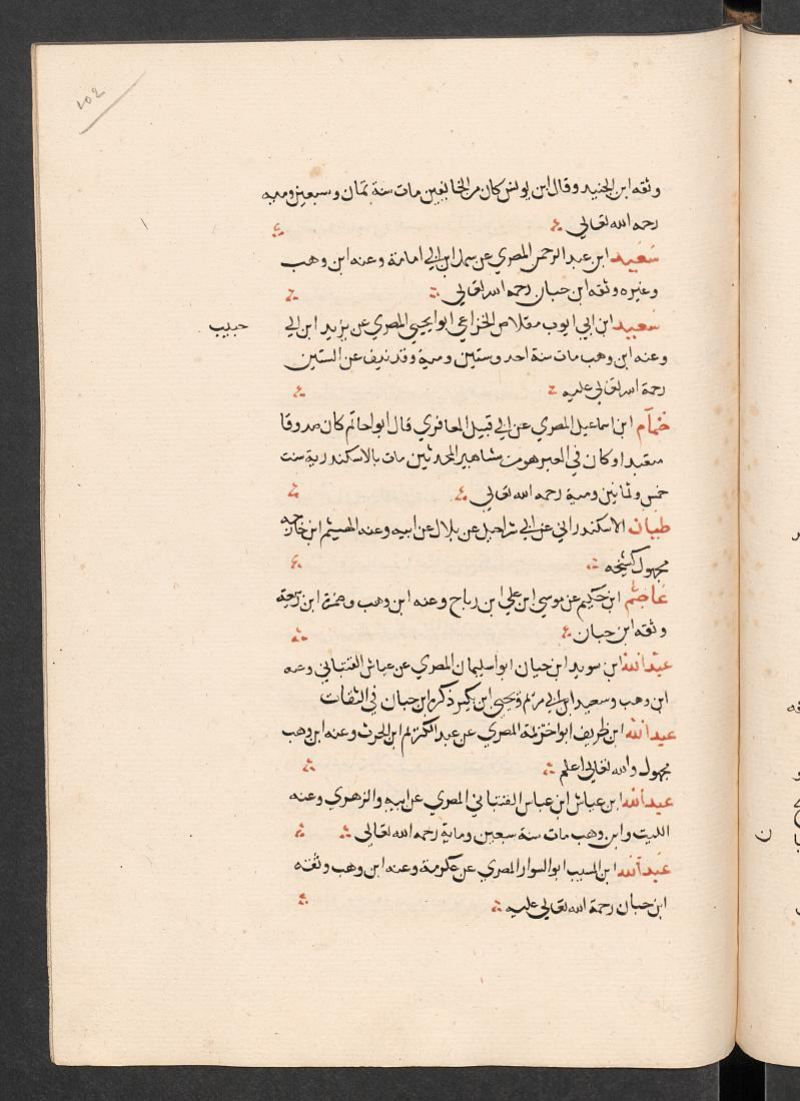 102
وثقه ابن الجنيد وقال ابن يونس كان من الخايفين مات سنة ثمان وسبعين وميه
رحمه الله تعالى
سَعيد ابن عبد الرحمن المصري عن سهل ابن ابي امامة وعنه ابن وهب
وغيره وثقه ابن حبان رحمه الله تعالى
سَعيد ابن ابي ايوب مقلاص الخزاعي ابو ايحيى المصري عن يزيد ابن ابي
حبيب
وعنه ابن وهب مات سنة احد وستين ومية وقد نيف عن الستين
رحمة الله تعالى عليه
ضمام ابن اسماعيل المصري عن ابي قبيل المعافري قال ابو احاتم كان صدوقا
متعبدا وكان في العبر هو من مشاهير المحدثين مات بالاسكندرية سنت
خمس وثمانين ومية رحمه الله تعالى
طبيان الاسكندراني عن ابي شراحيل عن بلال عن ابيه وعنه الهيثم ابن خارجه
مجهول كشيخه
عَاصم ابن حكيم عن موسى ابن علي ابن رباح وعنه ابن وهب وضمرة ابن ربيعة
وثقه ابن حبان
عبد الله ابن سويد ابن حيان ابو اسليمان المصري عن عياش القتباني وعنه
ابن وهب وسعيد ابن ابي مريم ويحيى ابن بكير ذكره ابن حبان في الثقات
عبد الله ابن طريف ابو اخزيمة المصري عن عبد الكريم ابن الحرث وعنه ابن وهب
مجهول والله تعالى اعلم
عبد الله ابن عياش ابن عباس القتباني المصري عن ابيه والزهري وعنه
الليث وابن وهب مات سنة سبعين وماية رحمه الله تعالى
عبد الله ابن المسيب ابو السوار المصري عن عكرمة وعنه ابن وهب وثقه
ابن حبان رحمة الله تعالى عليه